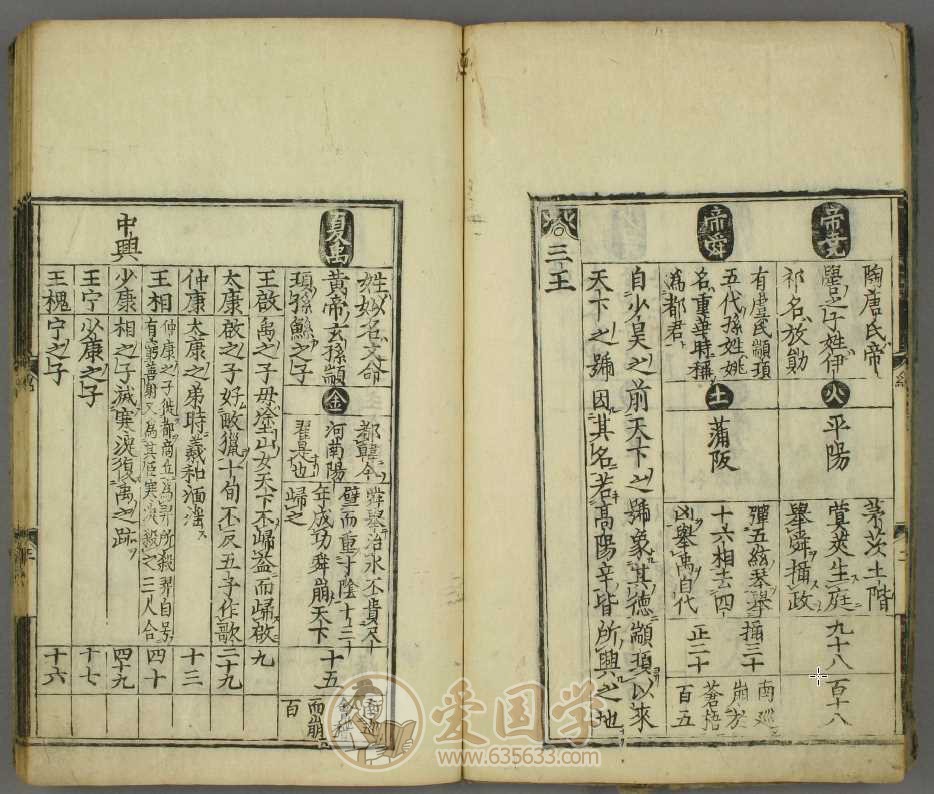 帝堯
陶唐氏帝
嚳之子姓伊
祁名放勛
火
平陽
茅茨土階
蓂莢生庭
舉舜攝政
九十八
百十八
帝舜
有虞氏顓頊
五代孫姓姚
名重華時稱
為都君
土
蒲阪
彈五絃琴舉
十六相去四
凶舉禹自代
攝三十
正二十
南巡
崩於
蒼梧
百五
三王
自少昊之前天下之號象其德顓頊以來
天下之號因其名若高陽辛皆所興之地
夏禹
姓姒名文命
黃帝玄孫顓
頊孫鯀之子
金
都韓今
河南陽
翟是也
舜舉治水不貴尺
璧而重寸陰十三
年成功舜崩天下
歸之
十五
南巡
會稽
而崩
百
王啟
禹之子母塗山女天下不歸益而歸啟
九
太康
啟之子好畋獵十旬不反五子作歌
二十九
仲康
太康之弟時羲和湎淫
十三
王相
仲康之子徙都商丘為羿所殺羿自号
有窮善射又為其臣寒浞殺之三人合
四十
中興
少康
相之子滅寒浞復禹之跡
四十九
王宁
少康之子
十七
王槐
宁之子
十六
爱国学
www.635633.com